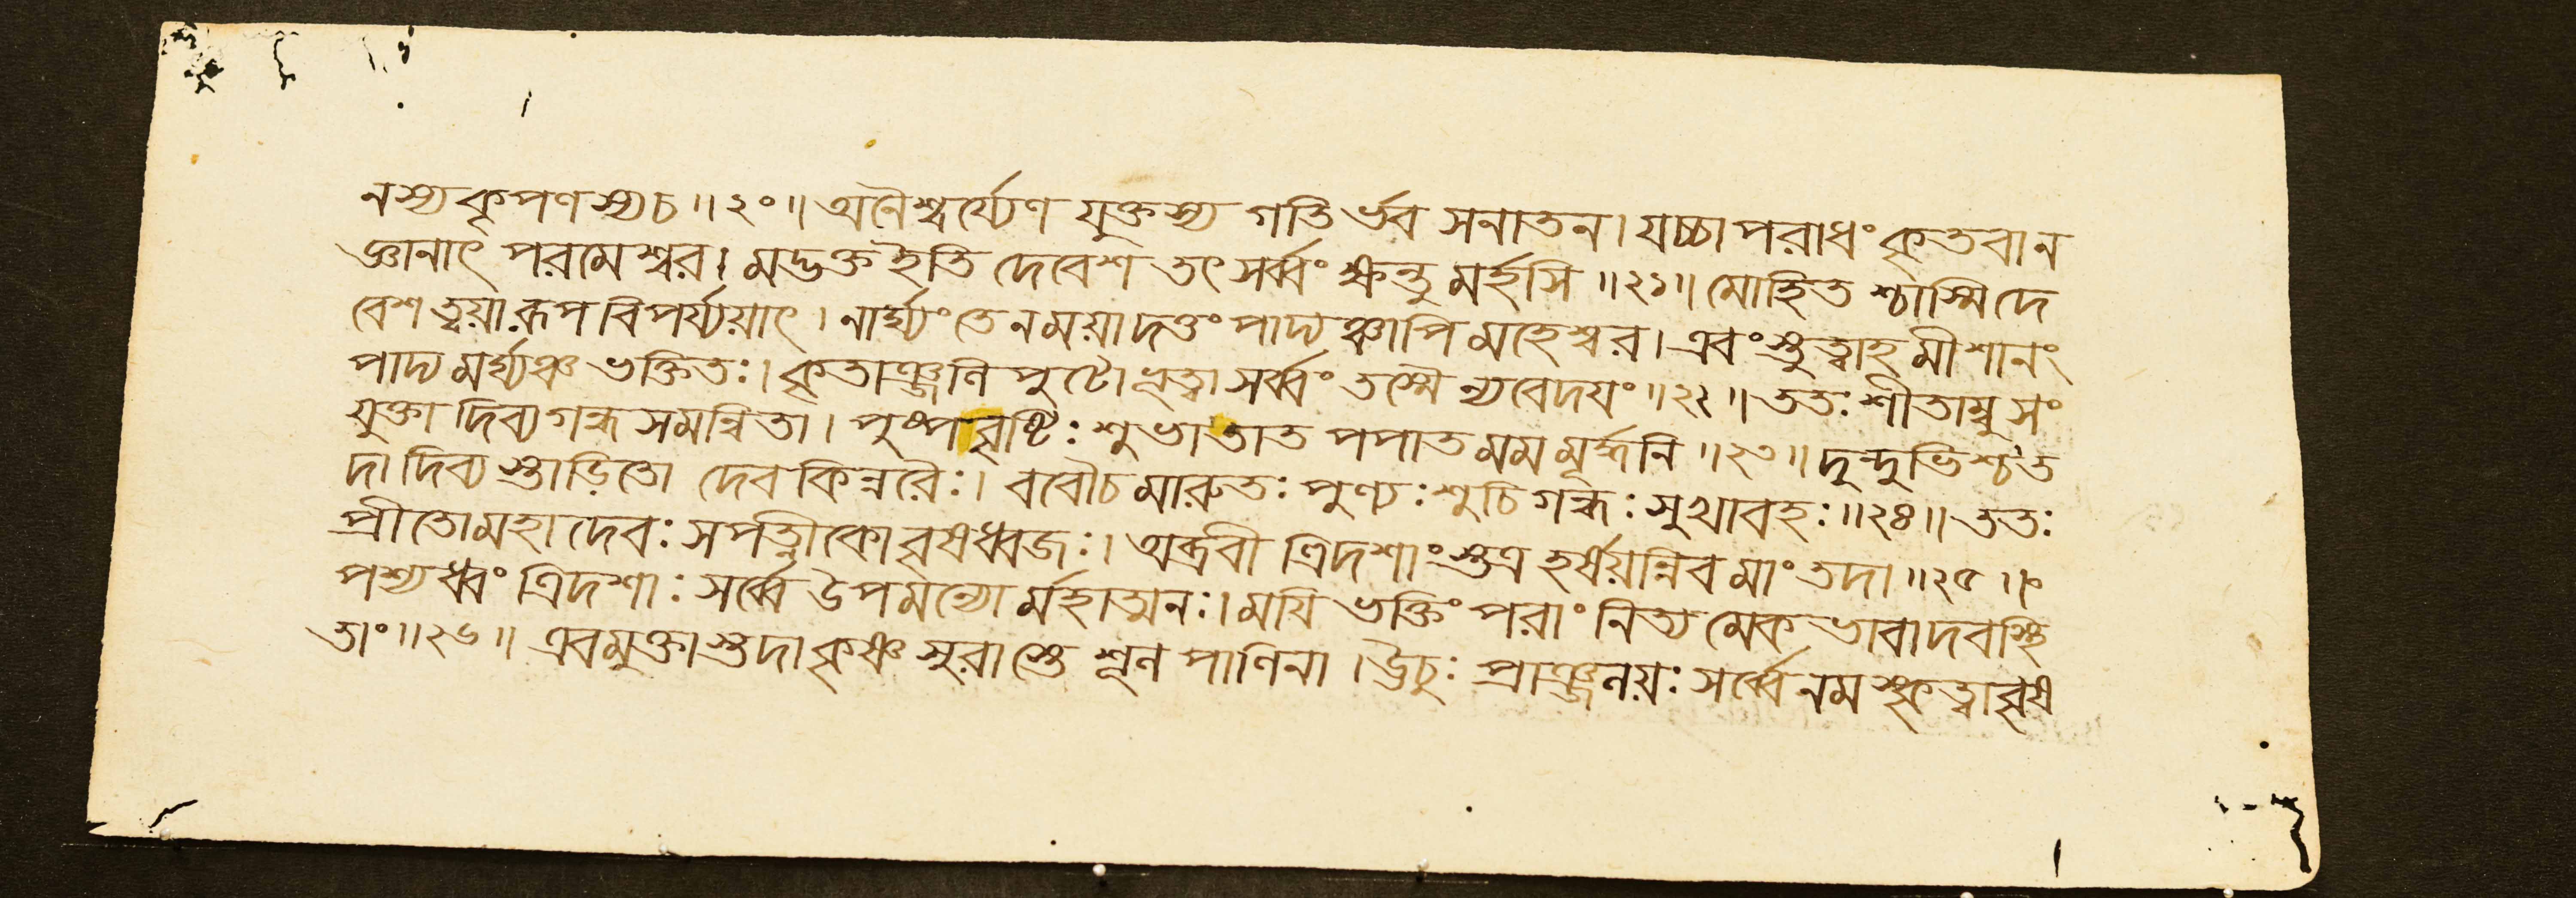 নস্যকৃপণস্যচ॥২০॥অনৈশ্বর্য্যেণ যুক্তস্য গতির্ভব সনাতন।যচ্চাপরাধং কৃতবান
জ্ঞানাৎ পরমেশ্বর।মদ্ভক্ত ইতি দেবেশ তৎ সর্ব্বং ক্ষন্তু মর্হসি॥২১॥মোহিত শ্চাস্মি দে
বেশ ত্বয়া রূপ বিপর্য্যয়াৎ। নার্ঘ্যং তেন ময়া দত্তং পাদ্যঞ্চাপি মহেশ্বর। এবং স্তুত্বাহ মীশানং
পাদ্য মর্ঘ্যঞ্চ ভক্তিতঃ। কৃতাঞ্জলি পুটো ভূত্বা সর্ব্বং তস্মৈ ন্যবেদয়ং॥২২॥ততঃ শীতাম্বু সং
যুক্তা দিব্য গন্ধ সমন্বিতা। পুষ্পবৃষ্টিঃ শুভা তাত পপাত মম মূর্দ্ধনি॥২৩॥দুন্দুভিশ্চ ত
দা দিব্য স্তাড়িতো দেব কিন্নরৈঃ। ববৌচ মারুতঃ পুণ্যঃ শুচি গন্ধঃ সুখাবহঃ॥২৪॥ততঃ
প্রীতো মহাদেবঃ সপত্নীকো বৃষধ্বজঃ। অব্রবী ত্রিদশাং স্তত্র হর্ষয়ন্নিব মাং তদা॥২৫॥
পশ্যধ্বং ত্রিদশাঃ সর্ব্বে উপমন্যো র্মহাত্মনঃ।ময়ি ভক্তিং পরাং নিত্য মেক ভাবাদবস্থি
তাং॥২৬॥ এবমুক্তাস্তদা কৃষ্ণ সুরাস্তে শূল পাণিনা। ঊচুঃ প্রাঞ্জলয়ঃ সর্ব্বে নমস্কৃত্বা বৃষ